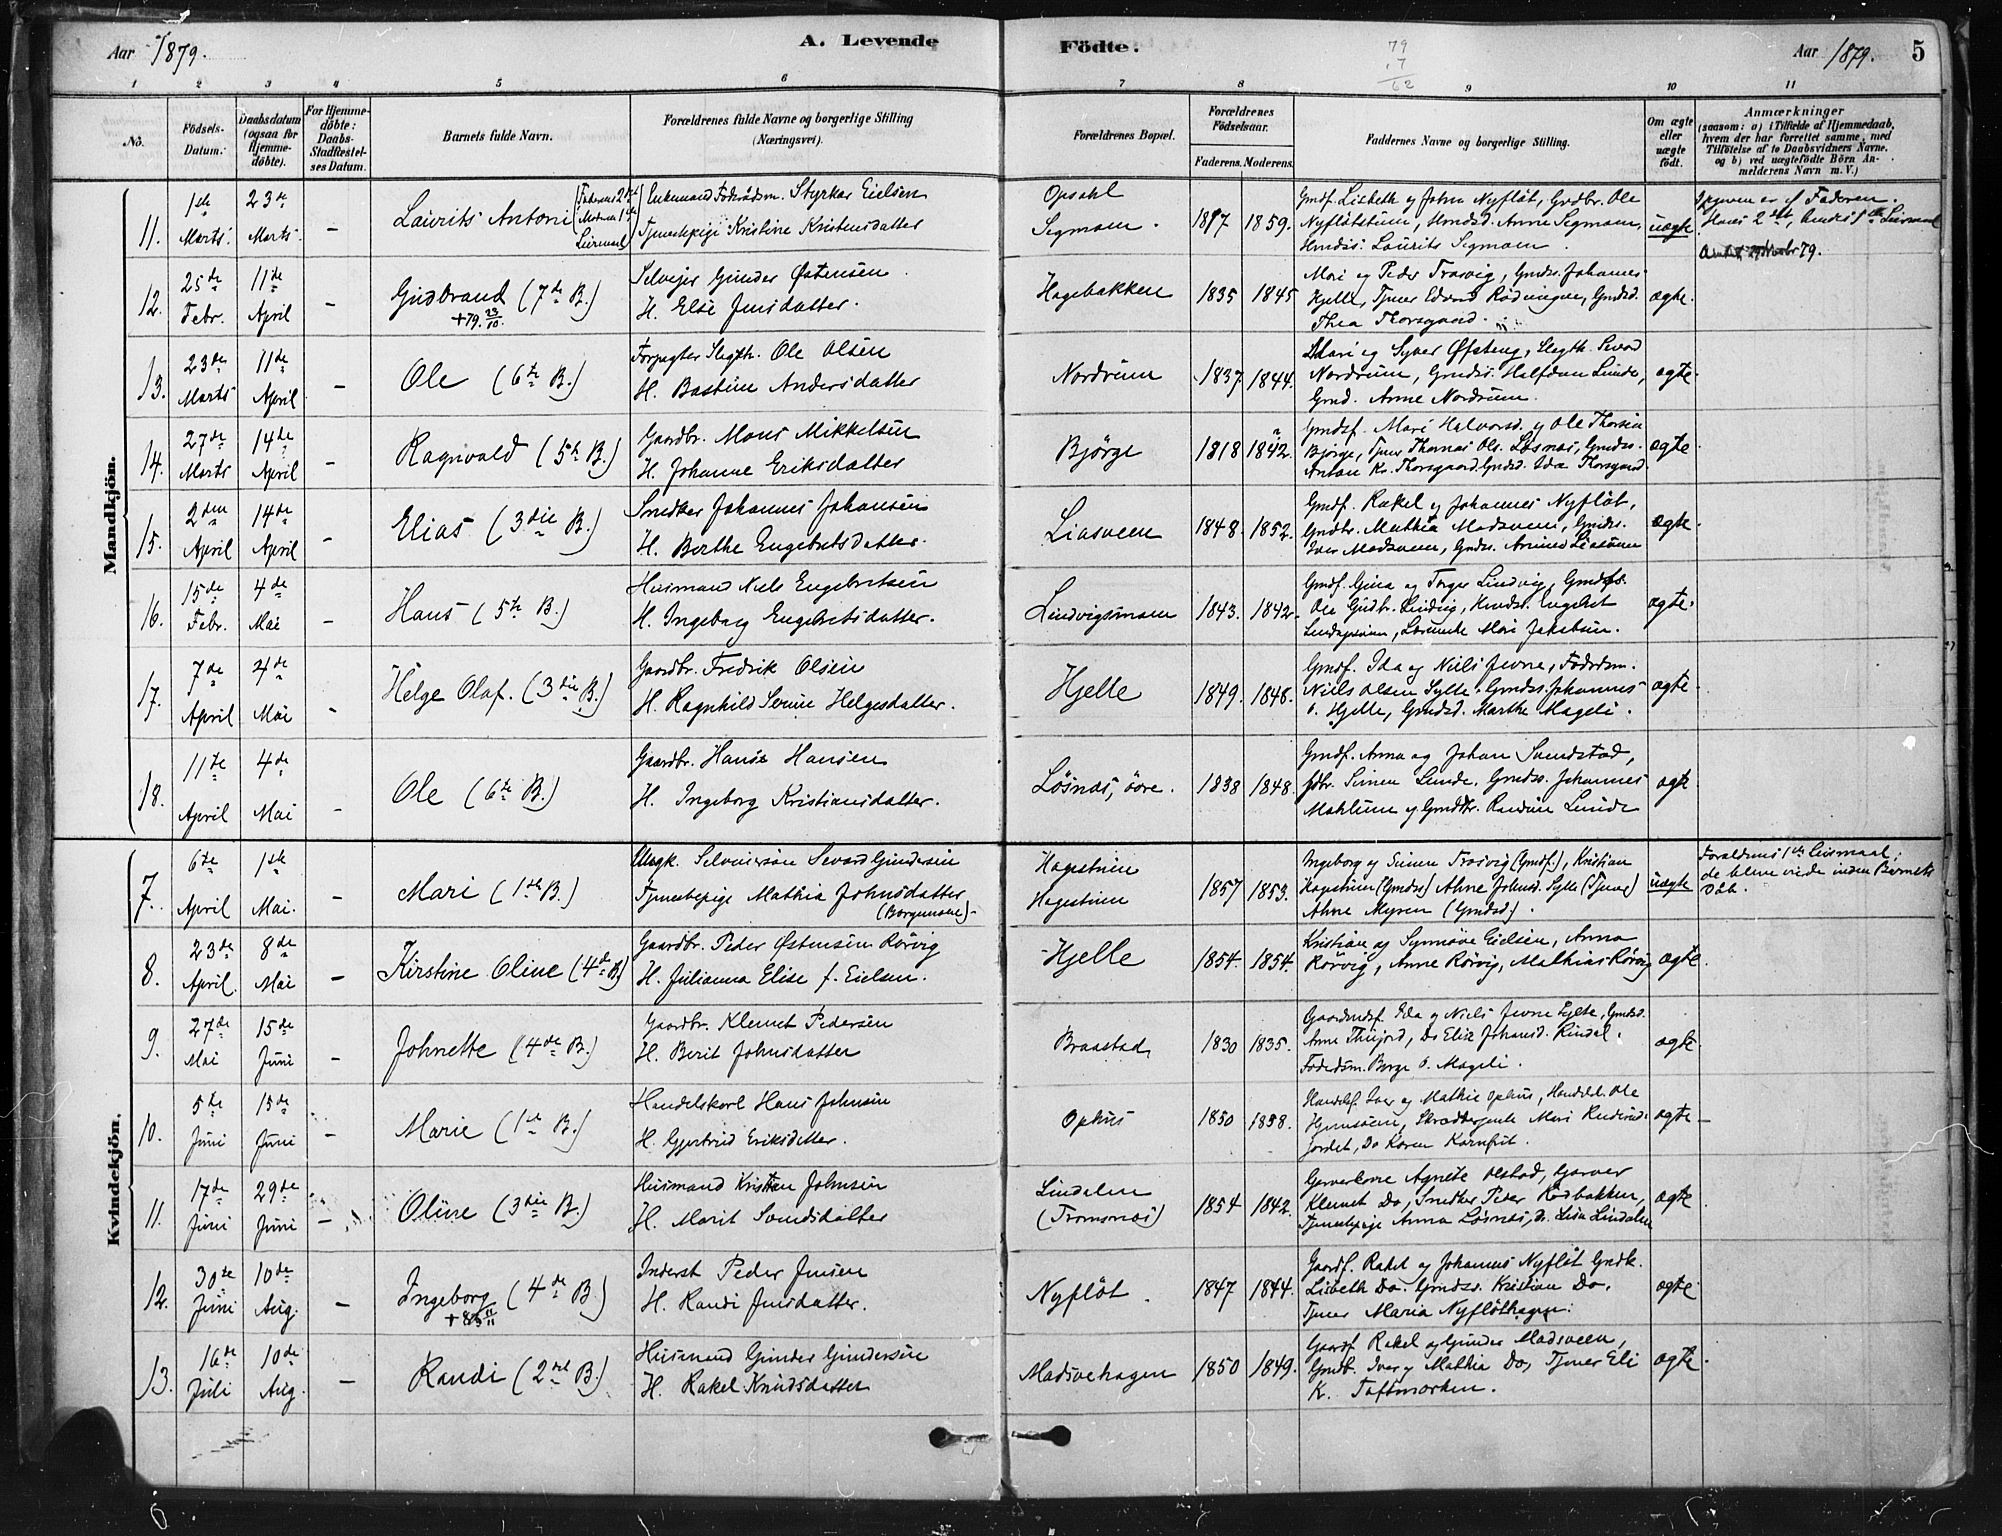 Aar 1879.
A. Levende Födte.
79
17
62
Aar 1879.
5
1 2 3 4 5 6 7 8 9 10 11
No.
Födsels-Datum.
Daabsdatum (ogsaa for Hjemme-döbte).
For Hjemme-döbte: Daabs-Stadfæstel-ses Datum.
Barnets fulde Navn.
Forældrenes fulde Navne og borgerlige Stilling (Næringsvei).
Forældrenes Bopæl.
Forældrenes Födselsaar.
Faderens. Moderens.
Faddernes Navne og borgerlige Stilling.
Om ægte eller uægte födt.
Anmærkninger
(saasom: a) i Tilfælde af Hjemmedaab,
hvem der har forrettet samme, med
Tilföielse af to Daabsvidners Navne,
og b) ved uægtefödte Börn An-
melderens Navn m. V.)
Mandkjön.
11. 1ste Marts. 23de Marts. - Laurits Antoni (Faderens 2det Moderens 1ste Leiermaal)
Enkemand Föderaadsm. Styrkar Eielsen
Tjenestepige Kristine Kristensdatter
Opsahl
Segmoen.
1817 1859.
Gmdf. Lisbeth og John Nyfløt, Grdbr. Ole
Nyfløtstuen, Anne Segmoen,
Laurits Segmoen.
uægte
Faderen.
Hans 2det, hendes 1ste Leiermaal
79.
12. 25de Febr. 11te April - Gudbrand (7de B.)
+79. 23/10.
Selveier Gunder Østensen.
H. Else Jensdatter.
Hagebakken 1835 1845
Mari og Peder Trosvig, Gmds. Johannes
Hjelle, Tjener Edvard Rødningen, Gmdsd.
Thea Thorsgaard.
ægte.
13. 23de Marts 11te April - Ole (6te B.)
Forpagter Slagth. Ole Olsen
H. Bastine Andersdatter
Nordrum 1837. 1844.
Mari og Syver Øfsteng, Slagth. Sevad
Nordrum, Gmds. Halfdan Lunde,
Gmd. Anne Nordrum.
ægte.
14. 27de Marts 14de April - Ragnvald (5te B.)
Gaardbr. Mons Mikkelsen
H. Johanne Eriksdatter
Bjørge 1818 1842.
Gmdsf. Mari Halvorsd. og Ole Thorsen
Bjørge, Tjener Thomas Ols. Løsnæs, Gmds.
Anton Kr. Thorsgaard. Gmdsd. Ida Thorsgaard.
ægte.
15. 2den April 14de April - Elias (3die B.)
Snedker Johannes Johansen
H. Berthe Engebretsdatter.
Liasveen 1848. 1852.
Gmdf. Rakel og Johannes Nyfløt,
Gmdbr. Mathia Madsveen, Gmds.
Iver Madsveen, Gmds.
ægte
16. 15de Febr. 4de Mai - Hans (5te B.)
Husmand Niels Engebretsen
H. Ingeborg Engebretsdatter.
Lindvigsmoen 1843. 1842.
Gmdf. Gina og Torger Lindvig, Gmds.
Ole Gudbr. Lindvig, Gmds. Engebret
Mari Jakobsen.
ægte.
17. 7de April 4de Mai - Helge Olaf. (3die B.)
Gaardbr. Fredrik Olsen
H. Ragnhild Serine Helgesdatter.
Hjelle 1849. 1848.
Gmdf. Ida og Niels Jevne, Föderdm.
Niels Olsen Sylte. Gmds. Johannes
O. Hjelle, Gmdsd. Marthe Mageli.
ægte.
18. 11te April 4de Mai - Ole (6te B.)
Gaardbr. Hans Hansen
H. Ingeborg Kristiansdatter.
Løsnæs, øvre. 1838 1848.
Gmdf. Anna og Johan Sundstad,
Gdbr. Simen Lunde. Gmds. Johannes
Mæhlum og Gmdbr. Randine Lunde
ægte.
Kvindekjön.
7. 6te April 1ste Mai. - Mari (1ste B.)
Ungk. Selveiersøn Sevard Gundersen
Tjenestepige Mathia Johnsdatter
(Borgemoene)
Hagestuen
Hagestuen
1857 1853.
Ingeborg og Simen Trosvig (Gmdf.), Kristian
Hagestuen (Gmds) Ahne Johnsd. Sylte (Tjener)
Ahne Myren (Gmdsd).
uægte
Forældrenes 1ste Leiermaal;
de bleve viede inden Barnets
Daab.
8. 23de April. 8de Mai - Kirstine Oline (4de B.)
Gaardbr. Peder Østensen Rørvig
H. Julianna Elise f. Eielsen.
Hjelle 1854. 1854.
Kristian og Synnøve Eielsen, Anna
Rørvig, Anne Rørvig, Mathias Rørvig
ægte.
9. 27de Mai 15de Juni - Johnette (4de B.)
Gaardbr. Klemet Pedersen
H. Berit Johnsdatter
Braastad, 1830 1835.
Gaardmdsf. Ida og Niels Jevne Sylte, Gmdsd.
Anne Thujord, Do Elise Johansd. Rindal.
Föderdm. Borge O. Mageli.
ægte.
10. 5te Juni 15de Juni - Marie (1ste B.)
Handelskarl Hans Johnsen
H. Gjertrud Eriksdatter.
Ophus 1850 1858.
Handelsf. Iver og Mathie Ophus, Handelsb. Ole
Skræddergjente Mari
jordet, Do Karen Kornfrit.
ægte
11. 17de Juni 29de Juni - Oline (3die B.)
Husmand Kristian Johnsen
H. Marit Svendsdatter
Lindalen
(Tromsnæs)
1854 1842.
Garverkone Agnete Olstad, Garver
Klemet Do, Snedker Peder Rødbakken,
Tjenestepige Anna Løsnæs, Do. Lisa Lindalen
ægte.
12. 30te Juni 10de Aug. - Ingeborg (4de B.)
Inderst Peder Jensen
H. Randi Jensdatter.
Nyfløt. 1847 1844.
Gaardf. Rakel og Johannes Nyfløt Gmdk.
Lisbeth Do. Gmds. Kristian Do.
Tjener Maria Nyfløthagen.
ægte.
13. 16de Juli 10de Aug. - Randi (2det B.)
Husmand Gunder Gundersen
H. Rakel Knudsdatter
Madsvehagen 1850 1849.
Gaardf. Rakel og Gunder Madsveen,
Gmdb. Iver og Mathia Do, Tjener Eli
K. Toftmorken.
ægte.